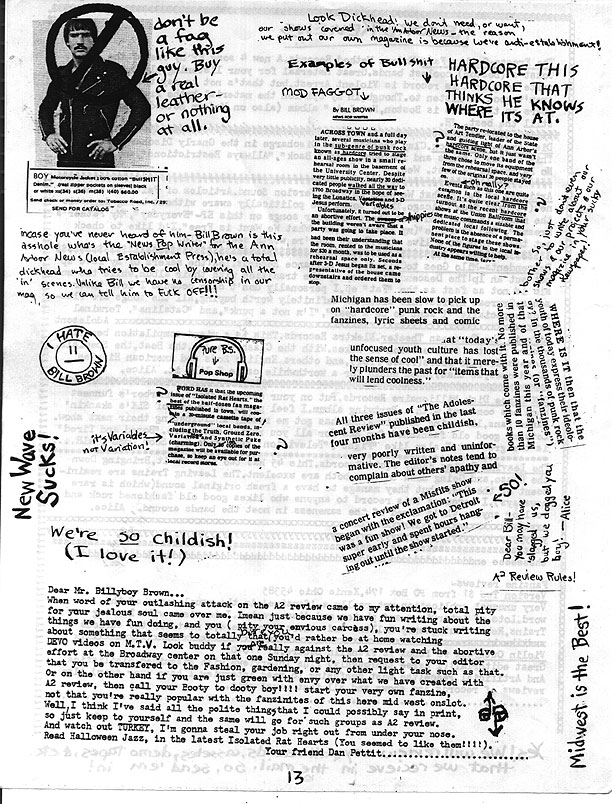 don't be
a fag
like this
guy. Buy
a real
leather-
or nothing
at all.
BOY Motorcycle Jacket 100% cotton "BullSHIT
Denim."
SEND FOR CATALOG
Look Dickhead! We dont need, or want,
our shows covered in the Ann Arbor News - the reason
we put out our own magazine is because we're anti-establishment!
Examples of Bullshit
MOD FAGGOT
By BILL BROWN
NEWS POP WRITER
ACROSS TOWN and a full day
later, several musicians who play
in the sub-genre of punk rock
known as hardcore tried to stage
an all-ages show in a small re-
hearsal room in the basement of
the University Center. Despite
very little publicity, nearly 30 dedi-
cated people walked all the way to
1750 Broadway in the hope of see-
ing the Landlist, Variables and 3-D
Jesus perform. Variables
Unfortunately, it turned out to be
an abortive effort. The
hippies
the building weren't aware that a
party was going to take place. It
had been their understanding that
the room, rented to the musicians
for a month, was to be used as a
rehearsal space only. Seconds
after 3-D Jesus began its set, a re-
presentative of the house came
downstairs and ordered them to
stop.
HARDCORE THIS
HARDCORE THAT
THINKS HE KNOWS
WHERE ITS AT.
The party re-located to the house
of Art Tendler, leader of the State
and guiding light of Ann Arbor's
hardcore scene, but it just wasn't
the same. Only one band of the
three chose to move its equipment
from the rehearsal space, and very
few of the original 30 people stayed
on.
oh really?
Events such as this one are quite
common in the local hardcore
scene. It's quite clear from the
turnout at the recent hardcore
shows at the Union Ballroom that
the music commands a sizable and
loyal local following. The
problem is the absence of a decent
place to stage these shows.
None of the figures in the local in-
dustry appears willing to help.
At the same time,
so just dont even
bother to write about our
shows & our projects & our
magazine in your shitty
Newspaper!
incase you've never heard of him- Bill Brown is this
asshole who's the "News Pop Writer" for the Ann
Arbor News (Local Establishment Press), he's a total
dickhead who tries to be cool by covering all the
'in' scenes. Unlike Bill we have no censorship in our
mag so we can tell him to FUCK OFF!!!
I HATE
BILL BROWN
Pure B.S.
Pop Shop
WORD HAS it that the upcoming
issue of "Isolated Rat Hearts," the
best of the half-dozen fan maga-
zines published in town, will con-
tain a 30-minute cassette tape of
"underground" local bands, in-
cluding the Truth, Ground Zero,
Variation and Synthetic Puke
(charming). Only 50 copies of the
magazine will be available for pur-
chase, so keep an eye out for it at
local record stores.
its Variables
not Variation!
Michigan has been slow to pick up
on "hardcore" punk rock and the
fanzines, lyric sheets and comic
books which come with it. No more
than 10 fanzines were published in
Michigan this year and of that
WHERE IS IT then that the
youth of today express their ideas?
In the thousands of punk rock
..at "today's
unfocused youth culture has lost
the sense of cool" and that it mere-
ly plunders the past for "items that
will lend coolness."
All three issues of "The Adoles-
cent Review" published in the last
four months have been childish,
very poorly written and uninfor-
mative. The editor's notes tend to
complain about others' apathy and
a concert review of a Misfits show
began with the exclamation: "This
was a fun show! We got to Detroit
super early and spent hours hang-
ing out until the show started."
SO!
Dear Bill-
You may have
slagged us,
but we dogged you
boy! —Alice
A2 Review Rules!
New Wave
Sucks!
We're so childish!
(I love it!)
Midwest is the Best!
Dear Mr. Billyboy Brown...
When word of your outlashing attack on the A2 review came to my attention, total pity
for your jealous soul came over me. Imean just because we have fun writing about the
things we have fun doing, and you ( pity your envious carcass), you're stuck writing
about something that seems to totally that you'd rather be at home watching
DEVO videos on M.T.V. Look buddy if you really against the A2 review and the abortive
effort at the Broadway center on that one Sunday night, then request to your editor
that you be transfered to the Fashion, gardening, or any other light task such as that.
Or on the other hand if you are just green with envy over what we have created with
A2 review, then call your Booty to dooty boy!!!! start your very own fanzine,
not that you're really popular with the fanzinites of this here mid west onslot.
Well,I think I've said all the polite things that I could possibly say in print,
so just keep to yourself and the same will go for such groups as A2 review.
And watch out TURKEY, I'm gonna steal your job right out from under your nose.
Read Halloween Jazz, in the latest Isolated Rat Hearts (You seemed to like them!!!!).
Your friend Dan Pettit.............
13